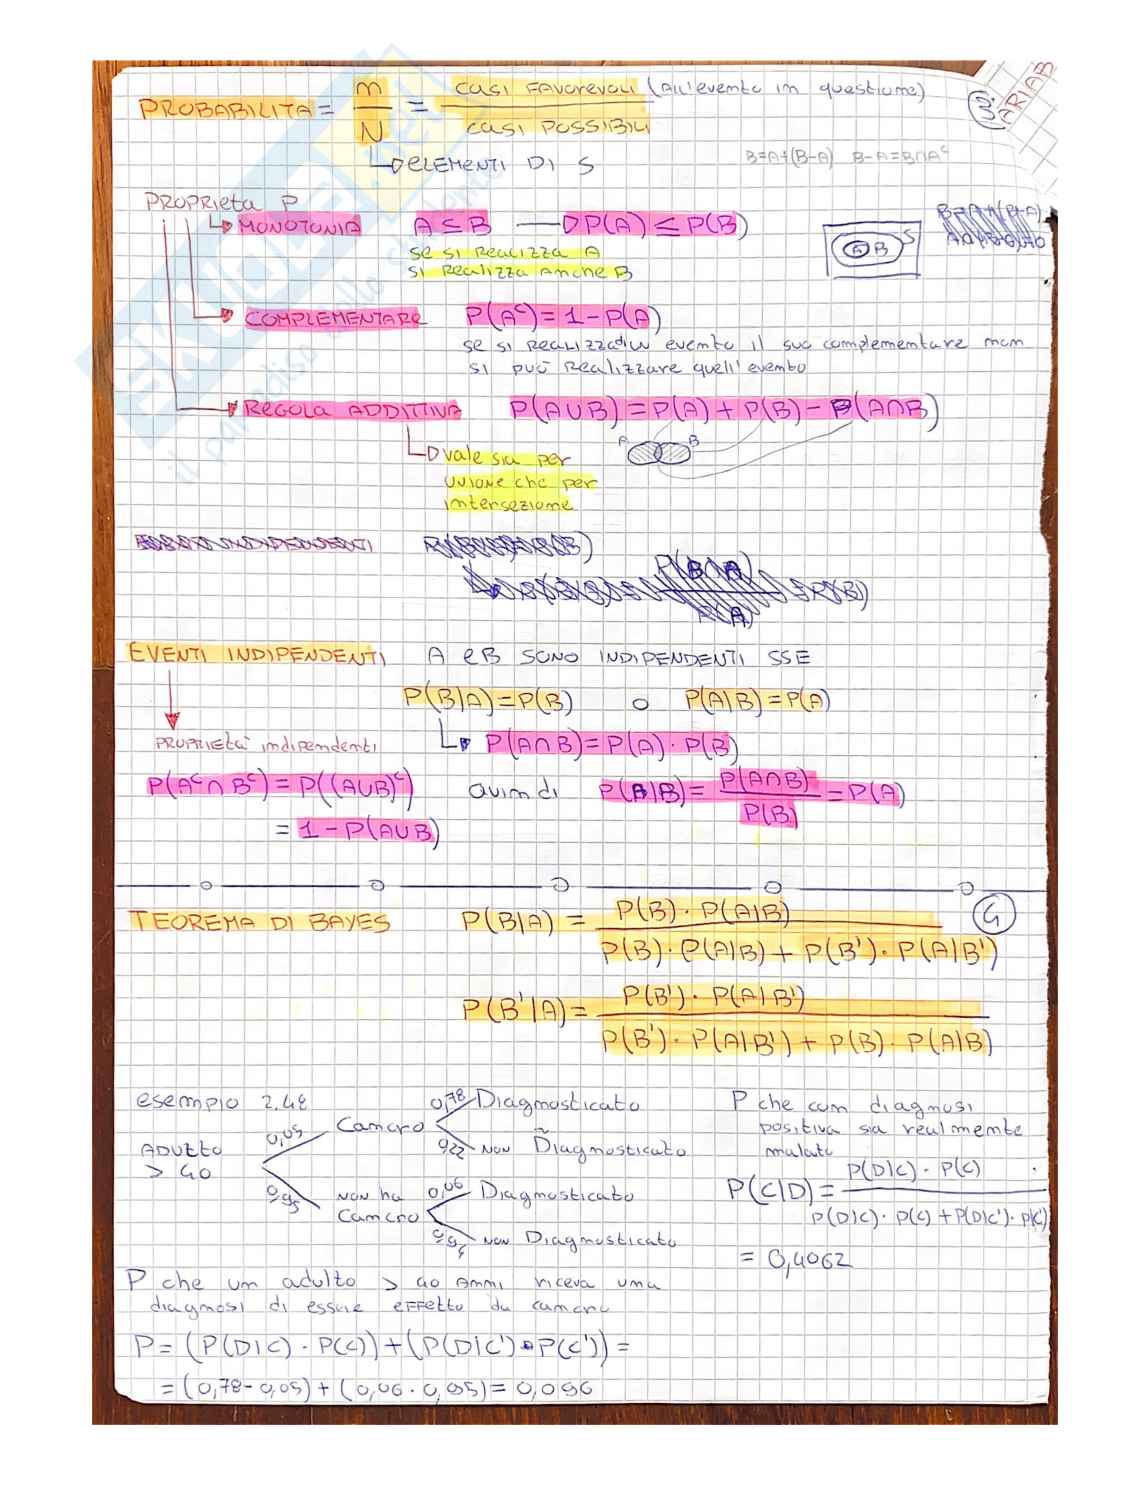 PROBABILITA = m/N = CASI FAVOREVOLI (All'evento in questione) / CASI POSSIBILI
3
ELEMENTI DI S
B=A+(B-A) B-A=B∩Aᶜ
PROPRIETA P
MONOTONIA A ⊆ B → P(A) ≤ P(B)
se si realizza A
si realizza anche B
A B S
COMPLEMENTARE P(Aᶜ) = 1 - P(A)
se si realizza un evento il suo complementare non
si può realizzare quell'evento
REGOLA ADDITIVA P(A∪B) = P(A) + P(B) - P(A∩B)
A B
vale sia per
unione che per
intersezione
EVENTI INDIPENDENTI A e B SONO INDIPENDENTI SSE
P(B|A) = P(B) o P(A|B) = P(A)
PROPRIETA' indipendenti P(A∩B) = P(A) · P(B)
P(Aᶜ∩Bᶜ) = P((A∪B)ᶜ) quindi P(A|B) = P(A∩B)/P(B) = P(A)
= 1 - P(A∪B)
4
TEOREMA DI BAYES P(B|A) = P(B) · P(A|B) / P(B) · P(A|B) + P(B') · P(A|B')
P(B'|A) = P(B') · P(A|B') / P(B') · P(A|B') + P(B) · P(A|B)
esempio 2.48
ADULTO
> 40
0,05 Cancro
0,78 Diagnosticato
0,22 NON Diagnosticato
0,95 NON ha
Cancro
0,06 Diagnosticato
NON Diagnosticato
P che con diagnosi
positiva sia realmente
malato
P(C|D) = P(D|C) · P(C) / P(D|C) · P(C) + P(D|C') · P(C')
= 0,4062
P che un adulto > 40 Anni riceva una
diagnosi di essere effetto da cancro
P = (P(D|C) · P(C)) + (P(D|C') · P(C')) =
= (0,78 - 0,05) + (0,06 · 0,95) = 0,096
SKUOLA.net
il paradiso dello studente